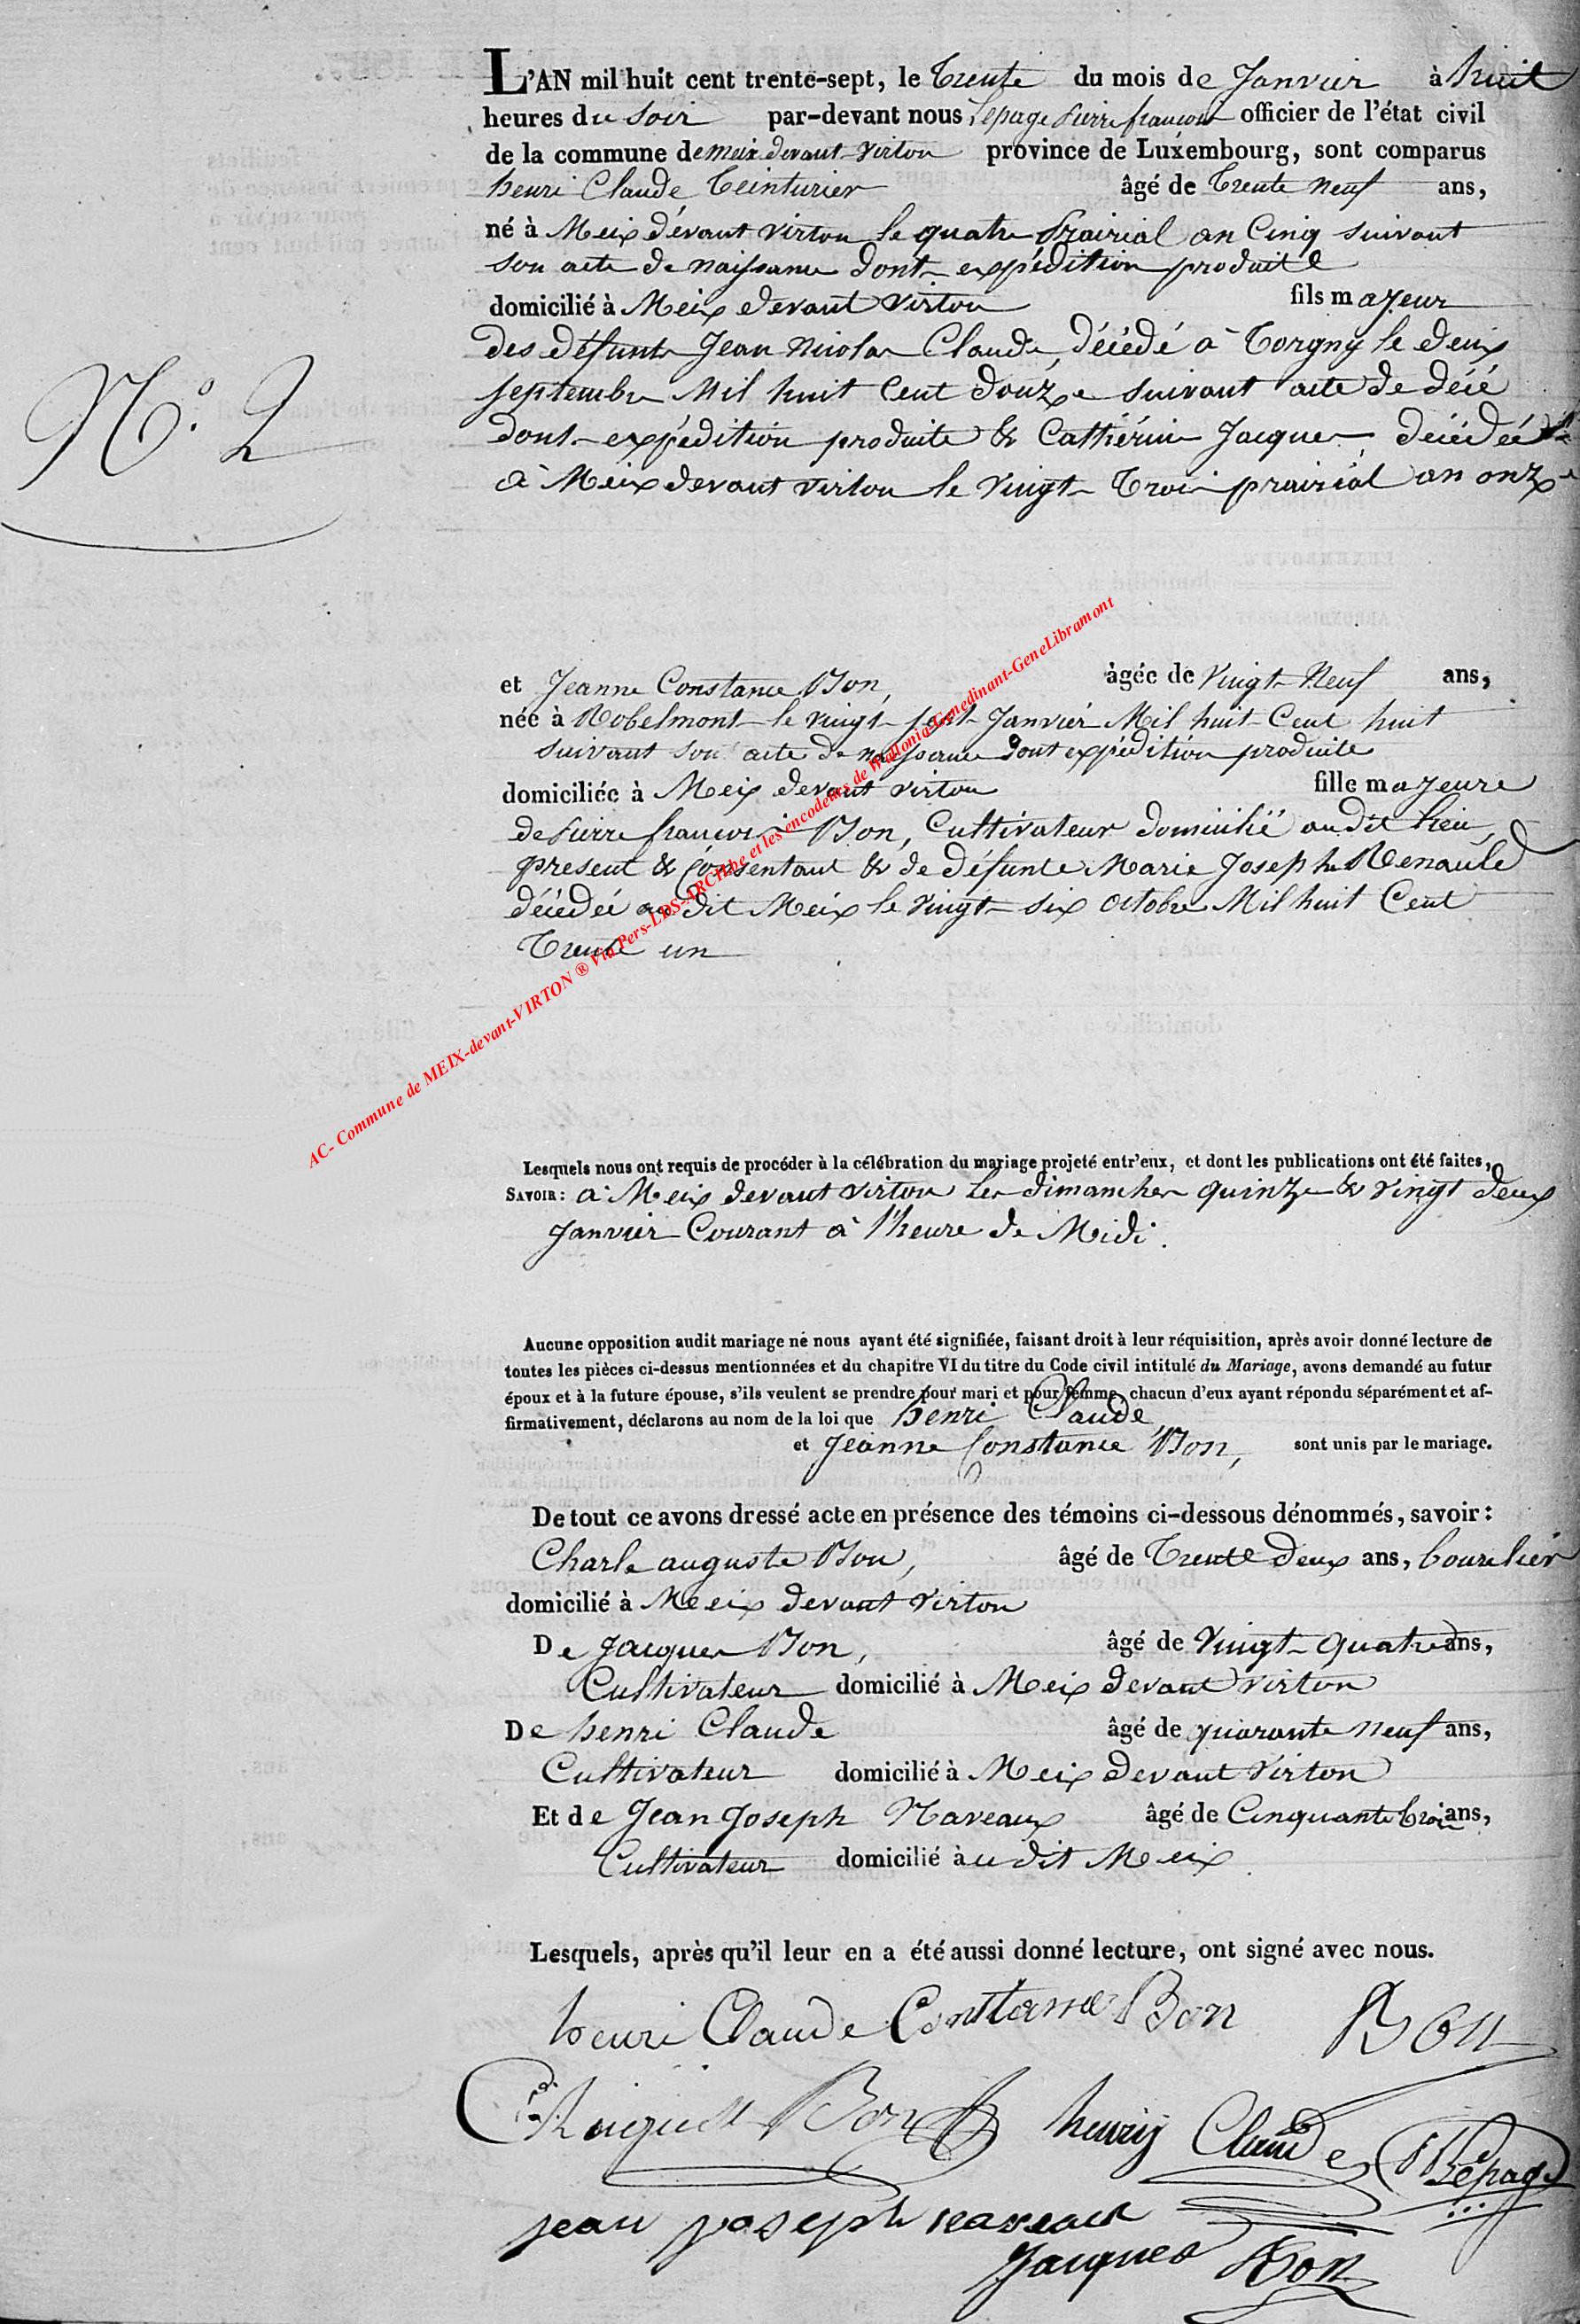 L'AN mil huit cent trente-sept, le Trente du mois de Janvier à huit
heures du Soir par-devant nous Lepage Pierre françois officier de l'état civil
de la commune de Meix devant Virton province de Luxembourg, sont comparus
henri Claude Teinturier âgé de Trente Neuf ans,
né à Meix devant Virton le quatre Prairial an Cinq suivant
son acte de naissance dont expédition produite
domicilié à Meix devant Virton fils majeur
des défunts Jean Nicolas Claude, décédé à Torgny le deux
septembre Mil huit Cent douze suivant acte de décé
dont expédition produite & Cathérine Jacques décédée
à Meix devant Virton le Vingt Trois prairial an onze
N.° 2
et Jeanne Constance Bon, âgée de Vingt Neuf ans,
née à Robelmont le Vingt sept Janvier Mil huit Cent huit
suivant son acte de naissance dont expédition produite
domiciliée à Meix devant Virton fille majeure
de Pierre françois Bon, Cultivateur domicilié audit lieu,
présent & Consentant & de défunte Marie Joseph Renauld
décédée au dit Meix le Vingt six octobre Mil huit Cent
Trente un
AC- Commune de MEIX-devant-VIRTON ® Via Pers-LDS-ARChbe et les encodeurs de Wallonia-Genedinant-GeneLibramont
Lesquels nous ont requis de procéder à la célébration du mariage projeté entr'eux, et dont les publications ont été faites,
SAVOIR: à Meix devant Virton les dimanches quinze & Vingt deux
Janvier Courant à l'heure de Midi.
Aucune opposition audit mariage ne nous ayant été signifiée, faisant droit à leur réquisition, après avoir donné lecture de
toutes les pièces ci-dessus mentionnées et du chapitre VI du titre du Code civil intitulé du Mariage, avons demandé au futur
époux et à la future épouse, s'ils veulent se prendre pour mari et pour femme, chacun d'eux ayant répondu séparément et af-
firmativement, déclarons au nom de la loi que henri Claude,
et Jeanne Constance Bon, sont unis par le mariage.
De tout ce avons dressé acte en présence des témoins ci-dessous dénommés, savoir:
Charle auguste Bon, âgé de Trente deux ans, bourelier
domicilié à Meix devant Virton
De Jacques Bon, âgé de Vingt quatre ans,
Cultivateur domicilié à Meix devant Virton
De henri Claude âgé de quarante neuf ans,
Cultivateur domicilié à Meix devant Virton
Et de Jean Joseph Naveaux âgé de Cinquante trois ans,
Cultivateur domicilié audit Meix
Lesquels, après qu'il leur en a été aussi donné lecture, ont signé avec nous.
henri Claude Constance Bon Bon
August Bon henry Claude Lepage
jean joseph naveaux
Jacques Bon